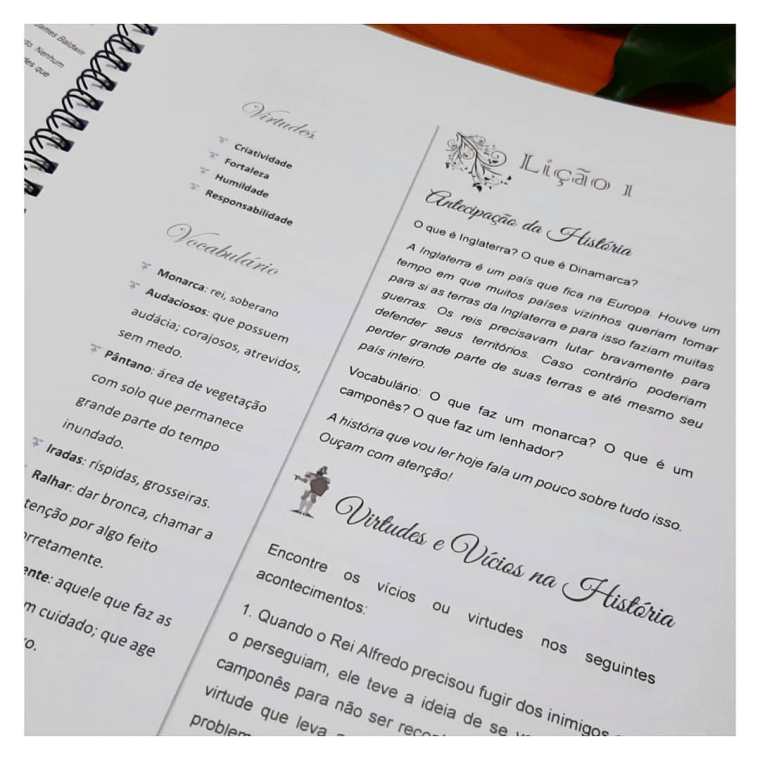 James Baldwin
Nenhum
que
Virtudes
Criatividade
Fortaleza
Humildade
Responsabilidade
Vocabulário
Monarca: rei, soberano
Audaciosos: que possuem
audácia; corajosos, atrevidos,
sem medo.
Pântano: área de vegetação
com solo que permanece
grande parte do tempo
inundado.
Iradas: ríspidas, grosseiras.
Ralhar: dar bronca, chamar a
por algo feito
aquele que faz as
cuidado; que age
Lição 1
Antecipação da História
O que é Inglaterra? O que é Dinamarca?
A Inglaterra é um país que fica na Europa. Houve um
tempo em que muitos países vizinhos queriam tomar
para si as terras da Inglaterra e para isso faziam muitas
guerras. Os reis precisavam lutar bravamente para
defender seus territórios. Caso contrário poderiam
perder grande parte de suas terras e até mesmo seu
país inteiro.
Vocabulário: O que faz um monarca? O que é um
camponês? O que faz um lenhador?
A história que vou ler hoje fala um pouco sobre tudo isso.
Ouçam com atenção!
Virtudes e Vícios na História
Encontre os vícios ou virtudes nos seguintes
acontecimentos:
1. Quando o Rei Alfredo precisou fugir dos inimigos
o perseguiam, ele teve a ideia de se
camponês para não ser
virtude que leva